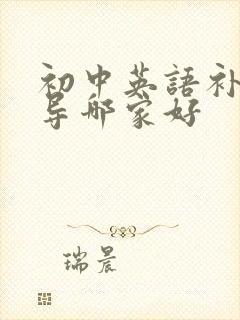 初中英語补
导哪家好
瑞晨